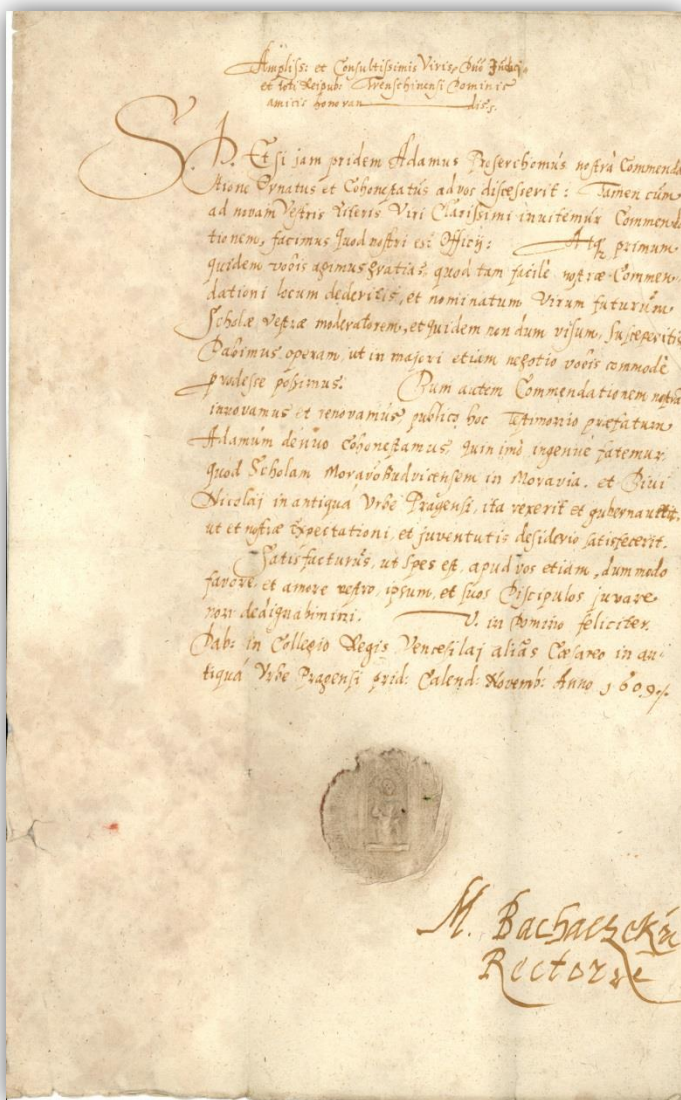 Ampliss: et Consultissimis Viris, Dnō Judici,
et toti Reipub: Trenschinensi Dominis
amicis honoran dis.
S. P. Etsi jam pridem Adamus nostrâ Commenda
tione Ornatus et Cohonestatus ad vos discesserit: Tamen cùm
ad novam Vestris literis Viri Clarissimi invitemur Commenda
tionem, facimus quod nostri est Officij: Atq, primum
quidem vobis agimus gratias, quod tam facilè nostræ Commen
dationi locum dederitis, et nominatum Virum futurum
Scholæ vestræ moderatorem, et quidem non dum visum, susceperitis
Dabimus operam, ut in majori etiam negotio vobis commodè
prodesse possimus. Dum autem Commendationem nostra
innovamus et renovamus, publico hoc testimonio præfatum
Adamum denuò cohonestamus, quin imò ingenuè fatemur
quod Scholam MoravoBudvicensem in Moravia, et Divi
Nicolaj in antiqua Urbe Pragensi, ita rexerit et gubernaverit,
ut et nostræ expectationi, et juventutis desiderio satisfecerit.
Satisfacturus, ut spes est, apud vos etiam, dummodo
favore, et amore vestro, ipsum, et suos Discipulos juvare
non dedignabimini. V. in Domino feliciter.
Dab: in Collegio Regis Venceslaj aliàs Cæsareo in an:
tiquâ Urbe Pragensi prid: Calend: Novemb: Anno 1609.
M. Bachaczek
Rector